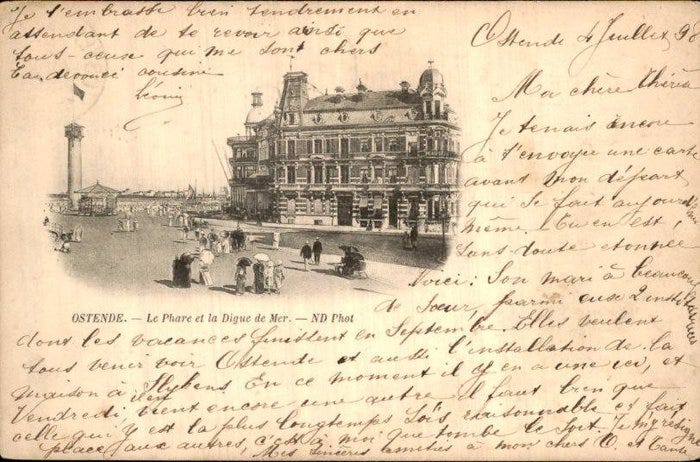 Ostende 4 Juillet, 98
Ma chère
Je tenais encore
à t'envoyer une carte
avant mon départ
qui se fait aujourd'
même. Tu en est
sans doute étonnée
Voici: Son mari à beaucoup
de sœur, parmi euse 2
OSTENDE. — Le Phare et la Digue de Mer. — ND Phot
dont les vacances finissent en Septembre. Elles veulent
tous venir voir Ostende et aussi l'installation de la
maison à En ce moment il y en a une ici, et
Vendredi, vient encore une autre, il faut bien que
celle qui y est la plus longtemps soit raisonnable et fait
place aux autres, c'est à moi que tombe le sort. Je my résigne
Mes sincères amitiés à mon cher O. et Tante
Je t'embrasse bien tendrement en
attendant de te revoir ainsi que
tous ceuse qui me sont chers
Ta devouée cousine
Léonie